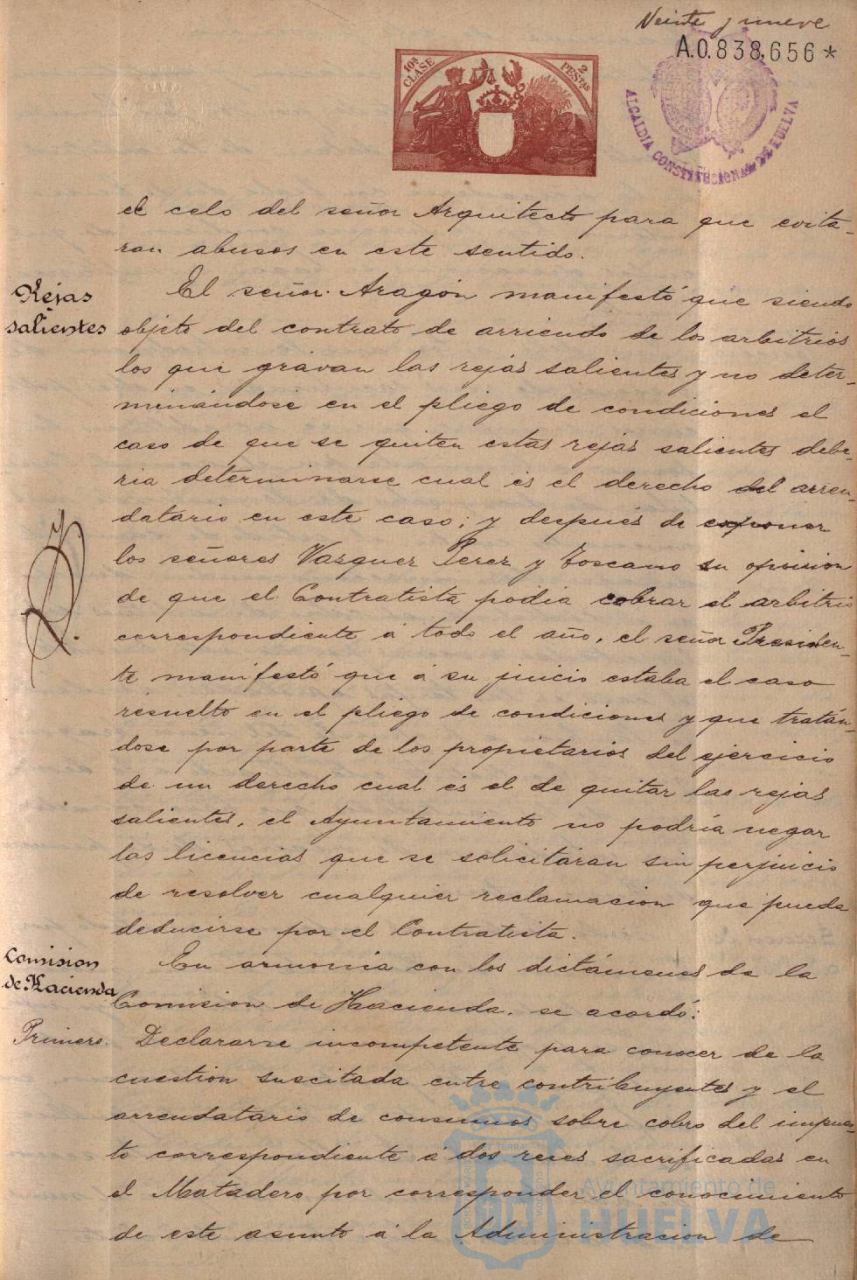 Veinte y nueve
A.0.838.656*
10ª CLASE
2 PESTAS
ALCALDIA CONSTITUCIONAL DE HUELVA
el celo del señor Arquitecto para que evita-
ran abusos en este sentido.
Rejas salientes
El señor Aragón manifestó que siendo
objeto del contrato de arriendo de los arbitrios
los que gravan las rejas salientes y no deter-
minándose en el pliego de condiciones el
caso de que se quiten estas rejas salientes debe-
ria determinarse cual és el derecho del arren-
datario en este caso; y después de exponer
los señores Vazquez Perez y Toscano su oposicion
de que el Contratista podia cobrar el arbitrio
correspondiente á todo el año, el señor Presiden-
te manifestó que á su juicio estaba el caso
resuelto en el pliego de condiciones y que tratán-
dose por parte de los propietarios del ejercicio
de un derecho cual és el de quitar las rejas
salientes, el Ayuntamiento no podría negar
las licencias que se solicitáran sin perjuicio
de resolver cualquier reclamacion que pueda
deducirse por el Contratista.
Comision de Hacienda
En armonía con los dictámenes de la
Comision de Hacienda, se acordó:
Primero.
Declararse incompetente para conocer de la
cuestion suscitada entre contribuyentes y el
arrendatario de consumos sobre cobro del impues-
to correspondiente á dos reses sacrificadas en
el Matadero por corresponder el conocimiento
de este asunto á la Administracion de
Ayuntamiento de
HUELVA